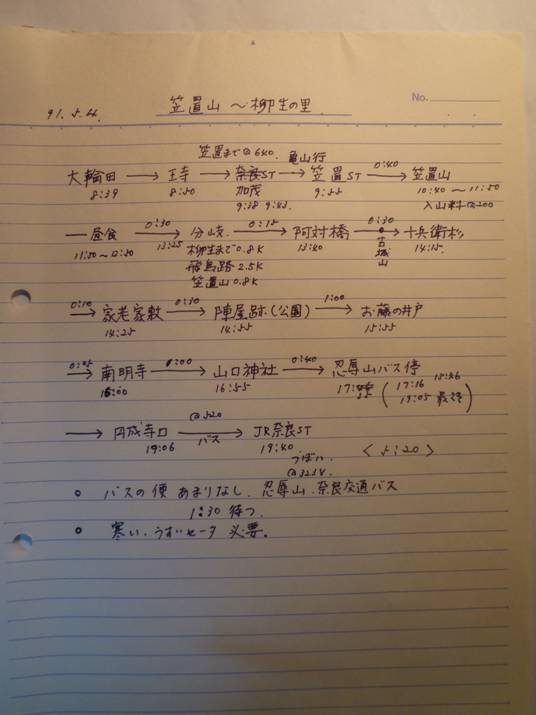 No.
91. 5. 26. 笠置山 〜柳生の里
笠置まで@640. 亀山行
大輪田 → 王寺 → 奈良ST → 笠置ST 0:40 → 笠置山
8:39 8:50 加茂 9:55 10:40 〜 11:50
9:38 9:43. 入山料@200
― 昼食 0:30 → 分岐. 0:15 → 阿対橋 0:30 → 十兵衛杉
11:50 〜 12:50 13:25 柳生まで0.8K 13:40 古城山 14:15.
飛鳥路 2.5K
笠置山 0.8K
0:10 → 家老家敷 0:30 → 陣屋跡(公園) 1:00 → お藤の井戸
14:25 14:55 15:55
0:05 → 南明寺 0:00 → 山口神社 0:40 → 忍辱山バス停
16:00 16:55 (17:16 15:46
19:05 最終)
→ 円成寺口 @520 バス → JR奈良ST
19:06 19:40 〈 5:20 〉
○ バスの便 あまりなし. 忍辱山. 奈良交通バス
1:30 待つ.
○ 寒い. うすいセータ 必要。